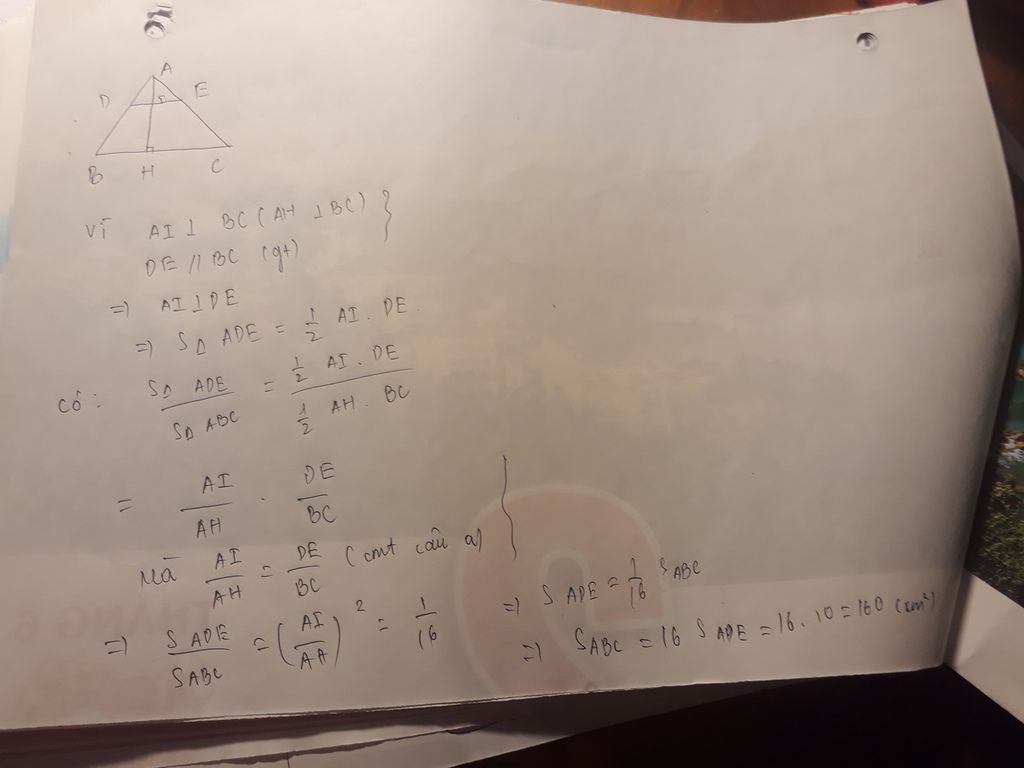 A
D E
I
B H C
Vì AI ⊥ BC (AH ⊥ BC) }
DE // BC (gt)
=> AI ⊥ DE
=> SΔ ADE = 1/2 AI . DE
Có: SΔ ADE / SΔ ABC = (1/2 AI . DE) / (1/2 AH . BC)
= AI/AH . DE/BC
Mà AI/AH = DE/BC (cmt câu a)
=> S ADE / SABC = (AI/AA)² = 1/16
=> S ADE = 1/16 SABC
=> SABC = 16 S ADE = 16 . 10 = 160 (cm²)
THÁNG 6